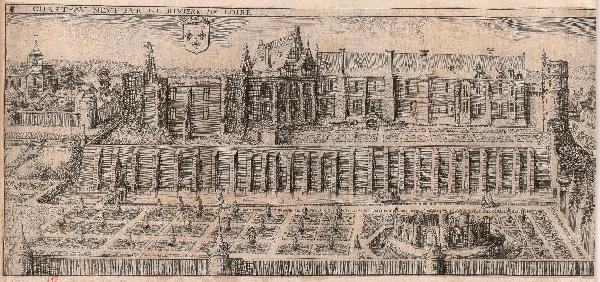 CHASTEAV NEVF SVR LE RIVIERE DE LOIRE